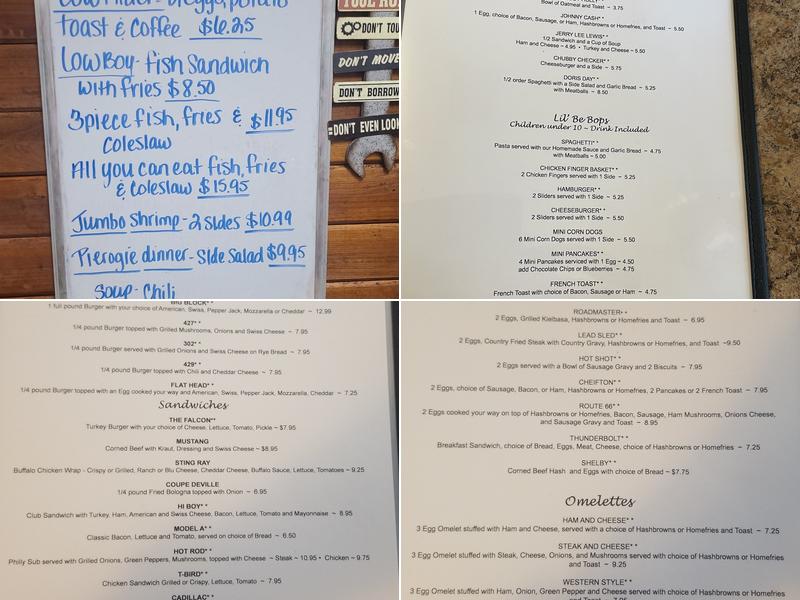 Toast & Coffee $6.25
LowBoy - fish Sandwich
with fries $8.50
3piece fish, fries & $11.95
Coleslaw
All you can eat fish, fries
& Coleslaw $15.95
Jumbo Shrimp - 2 sides $10.99
Pierogie dinner - Side Salad $9.95
Soup - Chili
TOOL RU
DON'T TOU
DON'T MOVE
DON'T BORROW
DON'T EVEN LOOK
Bowl of Oatmeal and Toast ~ 3.75
JOHNNY CASH**
1 Egg, choice of Bacon, Sausage, or Ham, Hashbrowns or Homefries, and Toast ~ 5.50
JERRY LEE LEWIS**
1/2 Sandwich and a Cup of Soup
Ham and Cheese ~ 4.95 • Turkey and Cheese ~ 5.50
CHUBBY CHECKER**
Cheeseburger and a Side ~ 5.75
DORIS DAY**
1/2 order Spaghetti with a Side Salad and Garlic Bread ~ 5.25
with Meatballs ~ 8.50
Lil' Be Bops
Children under 10 ~ Drink Included
SPAGHETTI**
Pasta served with our Homemade Sauce and Garlic Bread ~ 4.75
with Meatballs ~ 5.00
CHICKEN FINGER BASKET**
2 Chicken Fingers served with 1 Side ~ 5.25
HAMBURGER**
2 Sliders served with 1 Side ~ 5.25
CHEESEBURGER**
2 Sliders served with 1 Side ~ 5.50
MINI CORN DOGS
6 Mini Corn Dogs served with 1 Side ~ 5.50
MINI PANCAKES**
4 Mini Pancakes serviced with 1 Egg ~ 4.50
add Chocolate Chips or Blueberries ~ 4.75
FRENCH TOAST**
French Toast with choice of Bacon, Sausage or Ham ~ 4.75
BIG BLOCK**
1 full pound Burger with your choice of American, Swiss, Pepper Jack, Mozzarella or Cheddar ~ 12.99
427**
1/4 pound Burger topped with Grilled Mushrooms, Onions and Swiss Cheese ~ 7.95
302**
1/4 pound Burger served with Grilled Onions and Swiss Cheese on Rye Bread ~ 7.95
429**
1/4 pound Burger topped with Chili and Cheddar Cheese ~ 7.95
FLAT HEAD**
1/4 pound Burger topped with an Egg cooked your way and American, Swiss, Pepper Jack, Mozzarella, Cheddar ~ 7.25
Sandwiches
THE FALCON**
Turkey Burger with your choice of Cheese, Lettuce, Tomato, Pickle ~ $7.95
MUSTANG
Corned Beef with Kraut, Dressing and Swiss Cheese ~ $8.95
STING RAY
Buffalo Chicken Wrap - Crispy or Grilled, Ranch or Blu Cheese, Cheddar Cheese, Buffalo Sauce, Lettuce, Tomatoes ~ 9.25
COUPE DEVILLE
1/4 pound Fried Bologna topped with Onion ~ 6.95
HI BOY**
Club Sandwich with Turkey, Ham, American and Swiss Cheese, Bacon, Lettuce, Tomato and Mayonnaise ~ 8.95
MODEL A**
Classic Bacon, Lettuce and Tomato, served on choice of Bread ~ 6.50
HOT ROD**
Philly Sub served with Grilled Onions, Green Peppers, Mushrooms, topped with Cheese ~ Steak ~ 10.95 • Chicken ~ 9.75
T-BIRD**
Chicken Sandwich Grilled or Crispy, Lettuce, Tomato ~ 7.95
CADILLAC**
ROADMASTER**
2 Eggs, Grilled Kielbasa, Hashbrowns or Homefries and Toast ~ 6.95
LEAD SLED**
2 Eggs, Country Fried Steak with Country Gravy, Hashbrowns or Homefries, and Toast ~9.50
HOT SHOT**
2 Eggs served with a Bowl of Sausage Gravy and 2 Biscuits ~ 7.95
CHEIFTON**
2 Eggs, choice of Sausage, Bacon, or Ham, Hashbrowns or Homefries, 2 Pancakes or 2 French Toast ~ 7.95
ROUTE 66**
2 Eggs cooked your way on top of Hashbrowns or Homefries, Bacon, Sausage, Ham Mushrooms, Onions Cheese,
and Sausage Gravy and Toast ~ 8.95
THUNDERBOLT**
Breakfast Sandwich, choice of Bread, Eggs, Meat, Cheese, choice of Hashbrowns or Homefries ~ 7.25
SHELBY**
Corned Beef Hash and Eggs with choice of Bread ~ $7.75
Omelettes
HAM AND CHEESE**
3 Egg Omelet stuffed with Ham and Cheese, served with a choice of Hashbrowns or Homefries and Toast ~ 7.25
STEAK AND CHEESE**
3 Egg Omelet stuffed with Steak, Cheese, Onions, and Mushrooms served with choice of Hashbrowns or Homefries
and Toast ~ 9.25
WESTERN STYLE**
3 Egg Omelet stuffed with Ham, Onion, Green Pepper and Cheese served with choice of Hashbrowns or Homefries